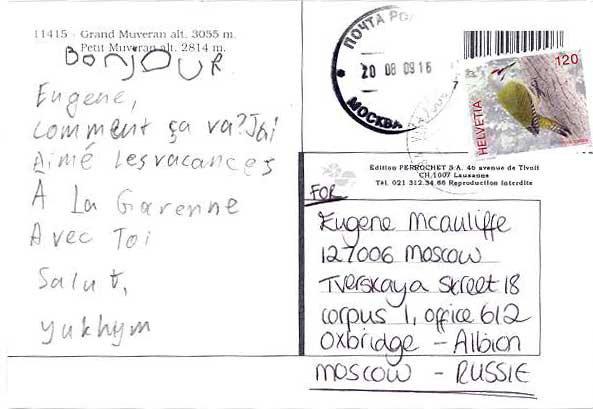 11415 - Grand Muveran alt. 3055 m.
Petit Muveran alt. 2814 m.
Bonjour
Eugene,
comment ça va? J'ai
Aimé les vacances
À La Garenne
Avec Toi
Salut,
yukhym
ПОЧТА РО
20 08 09 16
МОСКВА
120
HELVETIA
Edition PERROCHET S.A. 46 avenue de Tivoli
CH.1007 Lausanne
Tél. 021 312.34.66 Reproduction interdite
FOR
Eugene Mcauliffe
127006 Moscow
Tverskaya Street 18
corpus 1, office 612
Oxbridge - Albion
MOSCOW - RUSSIE